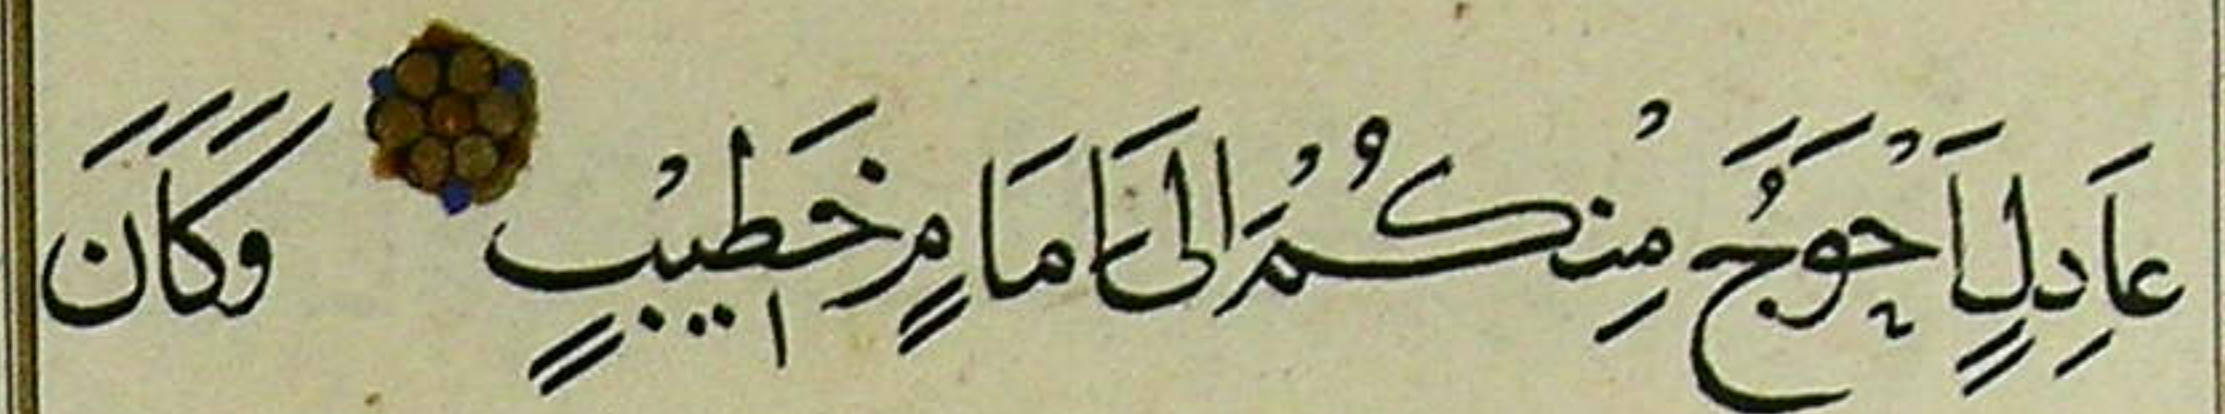 عَادِلٍ اَحْوَجُ مِنْكُمْ اِلَى اِمَامٍ خَطِيْبٍ وَكَانَ